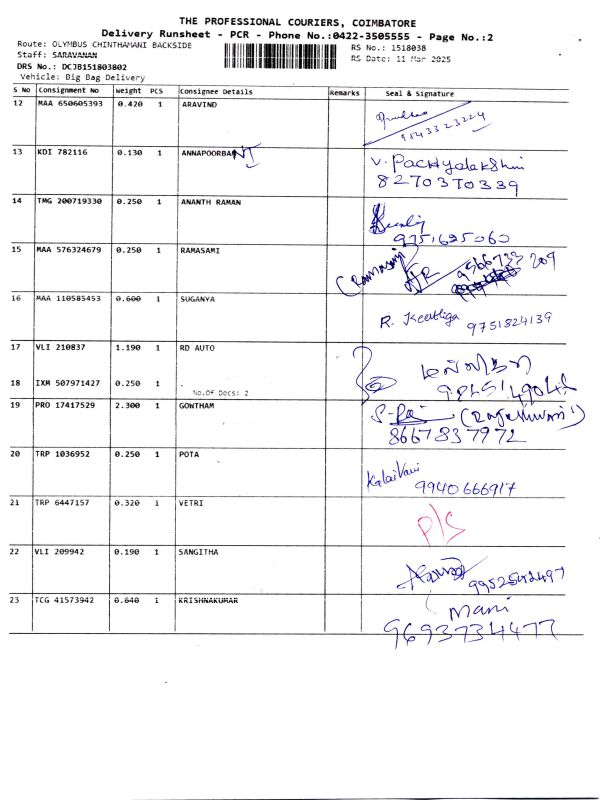 THE PROFESSIONAL COURIERS, COIMBATORE
Delivery Runsheet - PCR - Phone No.:0422-3505555 - Page No.:2
Route: OLYMBUS CHINTHAMANI BACKSIDE
RS No.: 1518038
Staff: SARAVANAN
RS Date: 11 Mar 2025
DRS No.: DCJB151803802
Vehicle: Big Bag Delivery
S No Consignment No Weight PCS Consignee Details Remarks Seal & Signature
12 MAA 650605393 0.420 1 ARAVIND
9543323224
13 KDI 782116 0.130 1 ANNAPOORBANT
V. Pachyalakshmi
8270370339
14 TMG 200719330 0.250 1 ANANTH RAMAN
9751625060
15 MAA 576324679 0.250 1 RAMASAMI
(Ramasami)
9566733 209
16 MAA 110585453 0.600 1 SUGANYA
R. Keerthiga 9751824139
17 VLI 210837 1.190 1 RD AUTO
18 IXM 507971427 0.250 1
No.Of Docs: 2
19 PRO 17417529 2.300 1 GOWTHAM
(Rajeshwari)
8667837972
20 TRP 1036952 0.250 1 POTA
Kalaivani 9940666917
21 TRP 6447157 0.320 1 VETRI
P/S
22 VLI 209942 0.190 1 SANGITHA
9952542497
23 TCG 41573942 0.640 1 KRISHNAKUMAR
Mani
9693734477